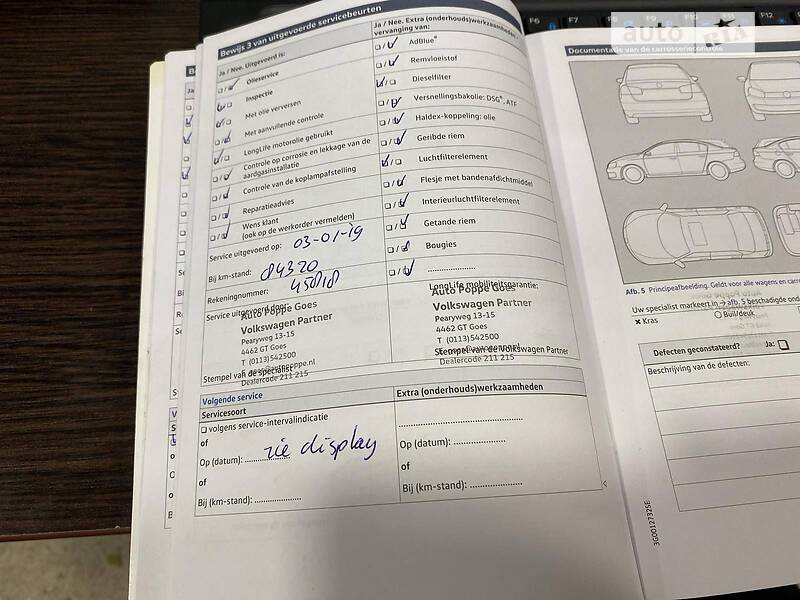 Bewijs 3 van uitgevoerde servicebeurten
Ja / Nee. Uitgevoerd is:
Olieservice
Inspectie
Met olie verversen
Met aanvullende controle
LongLife motorolie gebruikt
Controle op corrosie en lekkage van de
aardgasinstallatie
Controle van de koplampafstelling
Reparatieadvies
Wens klant
(ook op de werkorder vermelden)
Service uitgevoerd op: 03-01-19
Bij km-stand: 84320
Rekeningnummer:
Service uitgevoerd door:
Auto Poppe Goes
Volkswagen Partner
Pearyweg 13-15
4462 GT Goes
T (0113)542500
Dealercode 211 215
Stempel van de specialist
Ja / Nee. Extra (onderhouds)werkzaamheden
vervanging van:
AdBlue®
Remvloeistof
Dieselfilter
Versnellingsbakolie: DSG®, ATF
Haldex-koppeling: olie
Geribde riem
Luchtfilterelement
Flesje met bandenafdichtmiddel
Interieurluchtfilterelement
Getande riem
Bougies
LongLife mobiliteitsgarantie:
Auto Poppe Goes
Volkswagen Partner
Pearyweg 13-15
4462 GT Goes
T (0113)542500
Stempel van de Volkswagen Partner
Dealercode 211 215
Volgende service
Servicesoort
volgens service-intervalindicatie
of
Op (datum): zie display
of
Bij (km-stand):
Extra (onderhouds)werkzaamheden
Op (datum):
of
Bij (km-stand):
Documentatie van de carrosseriecontrole
Afb. 5 Principeafbeelding. Geldt voor alle wagens en carros
Uw specialist markeert in → afb. 5 beschadigde onde
× Kras
O Buil/deuk
Defecten geconstateerd? Ja:
Beschrijving van de defecten:
3G0012732SE
F6
F7
F8
F9
F10
F12
auto
RIA